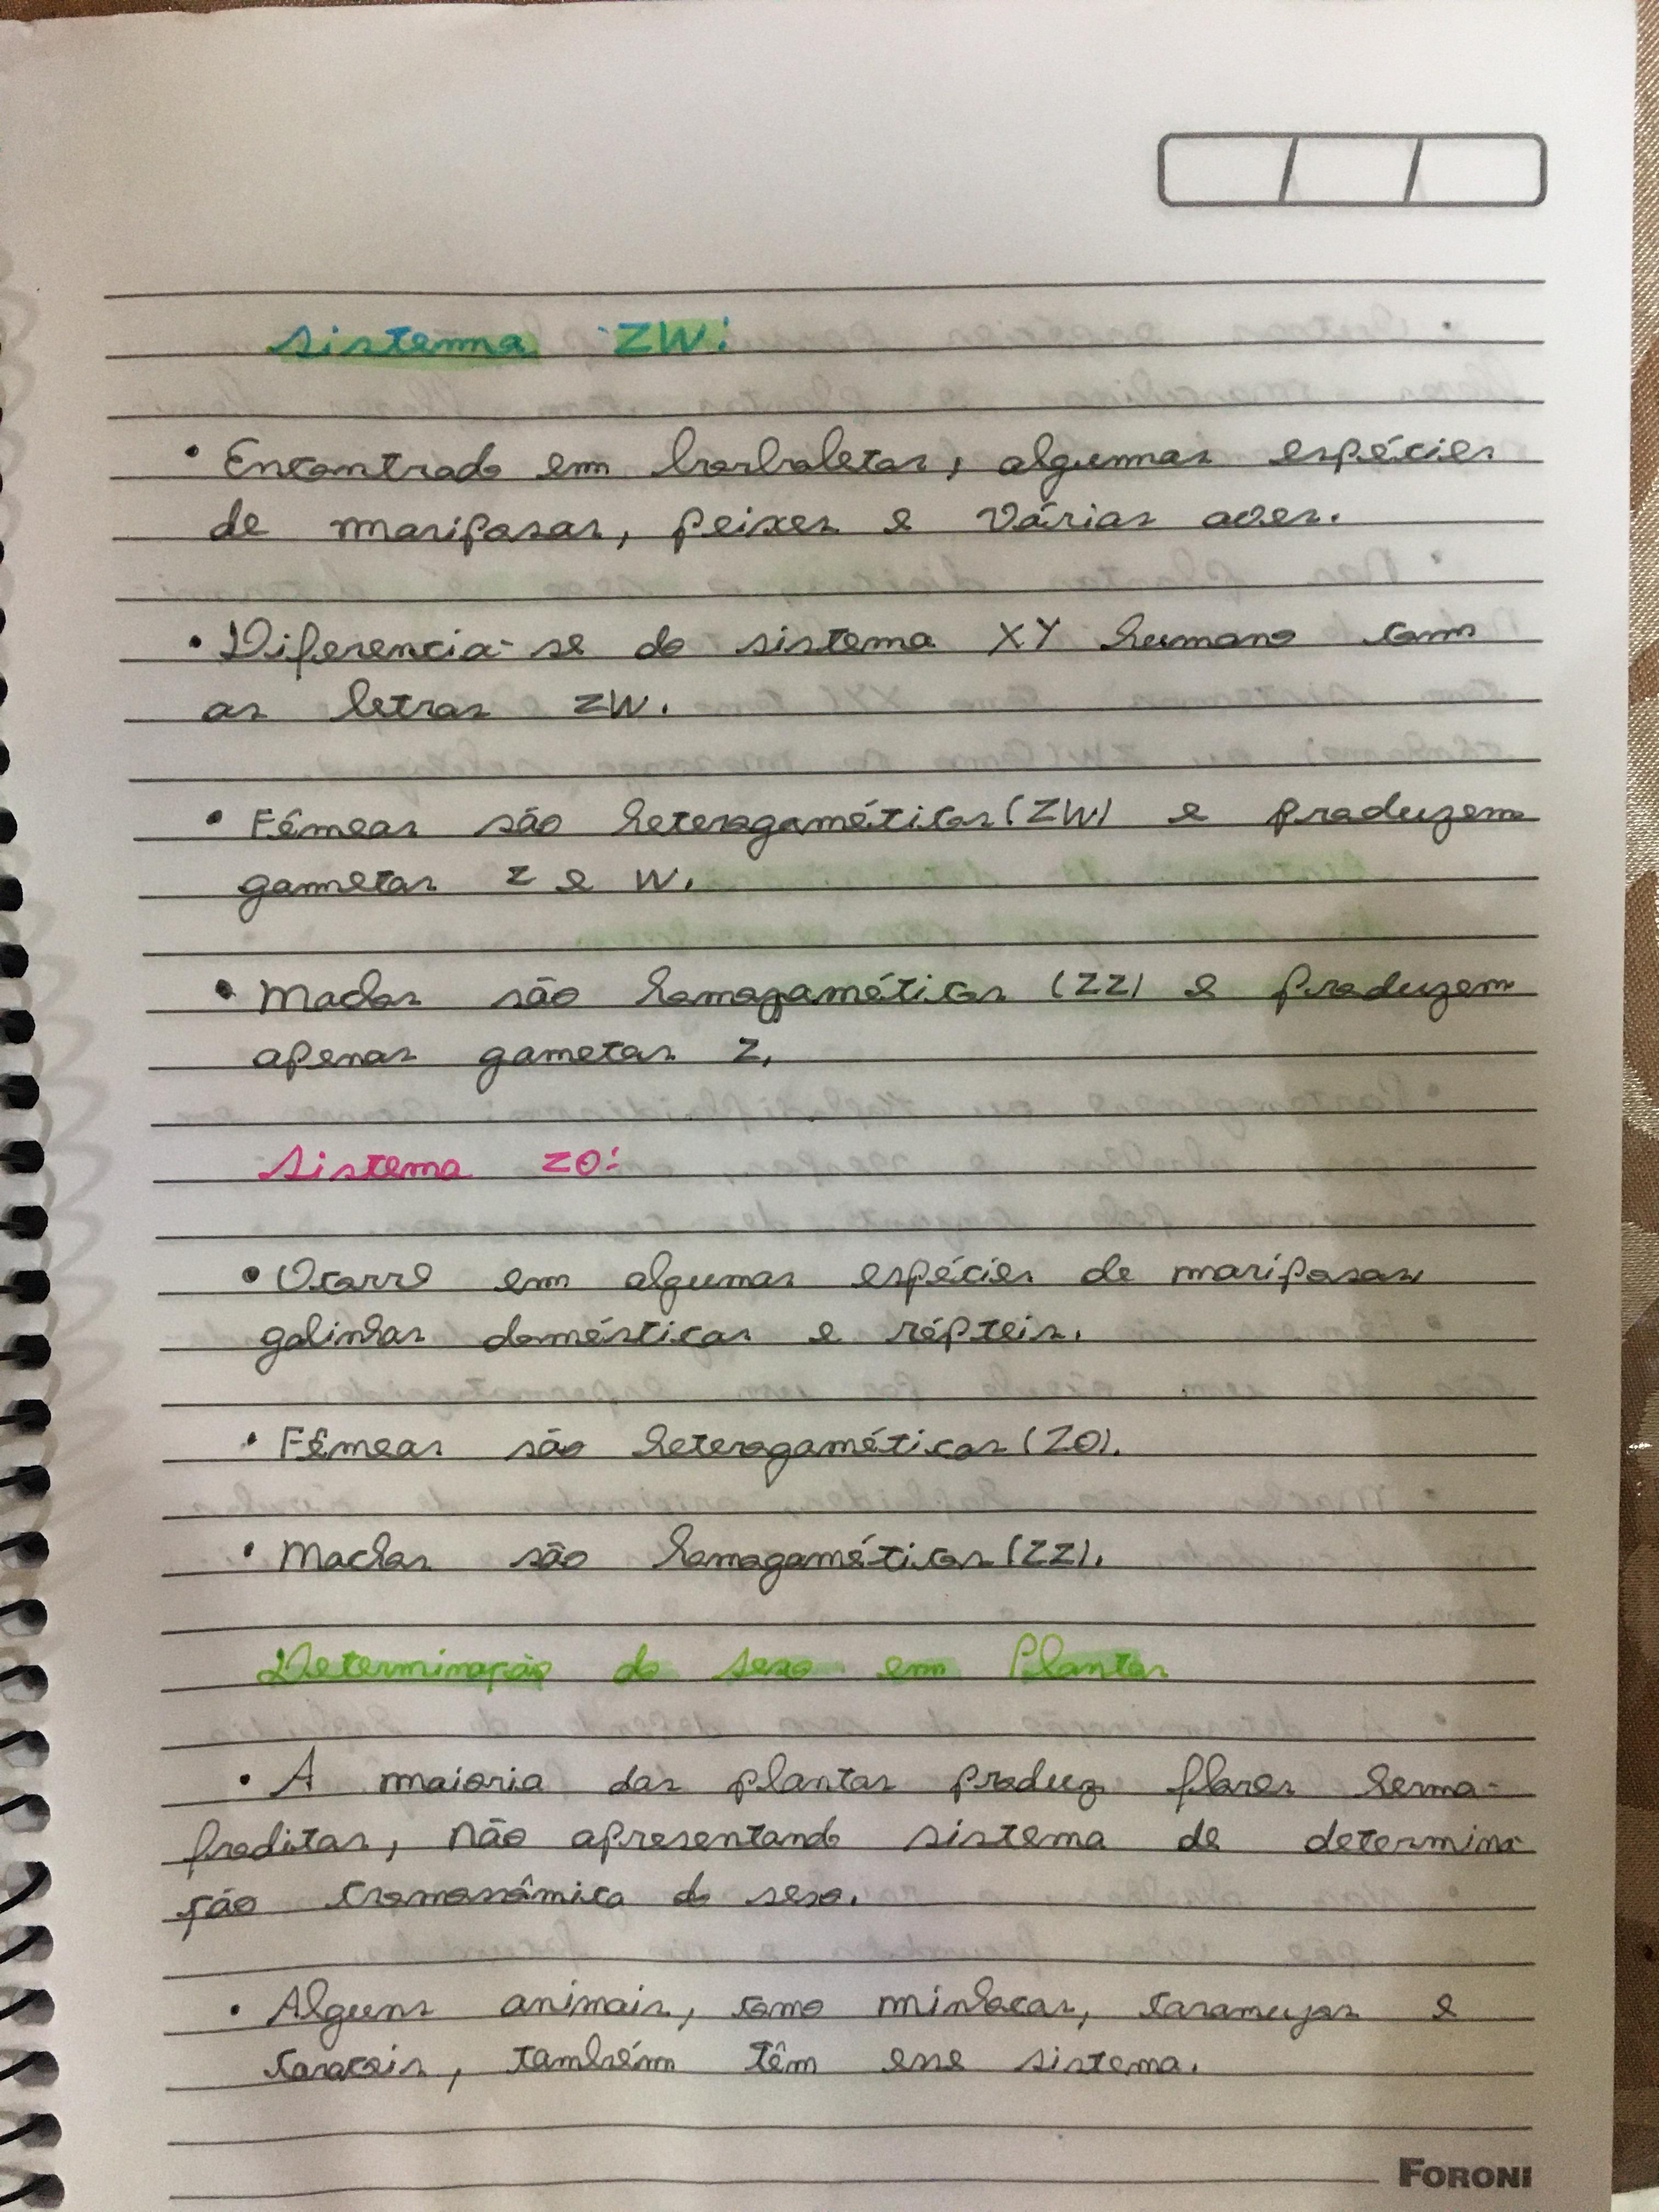 Sistema ZW:
• Encontrado em borboletas, algumas espécies
de mariposas, peixes e várias aves.
• Diferencia-se do sistema XY humano com
as letras ZW.
• Fêmeas são heterogaméticas (ZW) e produzem
gametas Z e W.
• Machos são homogaméticos (ZZ) e produzem
apenas gametas Z.
Sistema ZO:
• Ocorre em algumas espécies de mariposas,
galinhas domésticas e répteis.
• Fêmeas são heterogaméticas (ZO).
• Machos são homogaméticos (ZZ).
Determinação do sexo em Plantas
• A maioria das plantas produz flores herma-
froditas, não apresentando sistema de determina-
ção cromossômica do sexo.
• Alguns animais, como minhocas, caramujos e
caracóis, também têm esse sistema.
FORONI